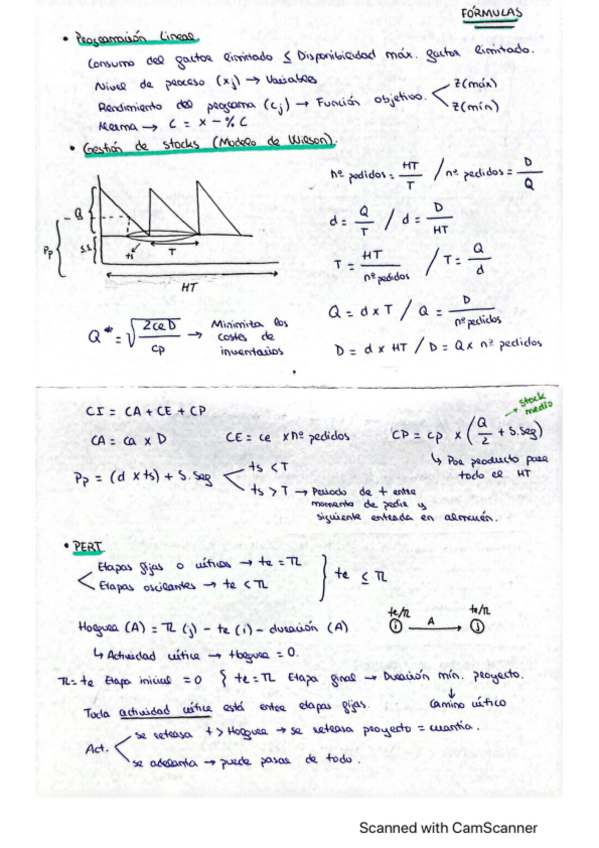 FÓRMULAS
• Programación Lineal.
Consumo del factor limitado ≤ Disponibilidad máx. factor limitado.
Nivel de proceso (xj) → Variables
Rendimiento del programa (cj) → Función objetivo. < Z(máx) Z(mín)
Merma → C = x - % C
• Gestión de stocks (Modelo de Wilson).
nº pedidos = HT/T / nº pedidos = D/Q
d = Q/T / d = D/HT
T = HT/nº pedidos / T = Q/d
Q = d x T / Q = D/nº pedidos
D = d x HT / D = Q x nº pedidos
Q
Pp
S.S
ts
T
HT
Q* = √(2 ce D / cp) → Minimiza los costes de inventarios
CI = CA + CE + CP
CA = ca x D
CE = ce x nº pedidos
CP = cp x (Q/2 + S.Seg) → stock medio
↳ Por producto para todo el HT
Pp = (d x ts) + S.Seg < ts < T
ts > T → Periodo de t entre momento de pedir y siguiente entrada en almacén.
• PERT
Etapas fijas o críticas → te = TL
Etapas oscilantes → te < TL } te ≤ TL
Holgura (A) = TL (j) - te (i) - duración (A)
te/TL i A → te/TL j
↳ Actividad crítica → Holgura = 0.
TL = te Etapa inicial = 0 { te = TL Etapa final → Duración mín. proyecto.
↓
Camino crítico
Toda actividad crítica está entre etapas fijas.
Act. < se retrasa t > Holgura → se retrasa proyecto = cuantía.
se adelanta → puede pasar de todo.
Scanned with CamScanner